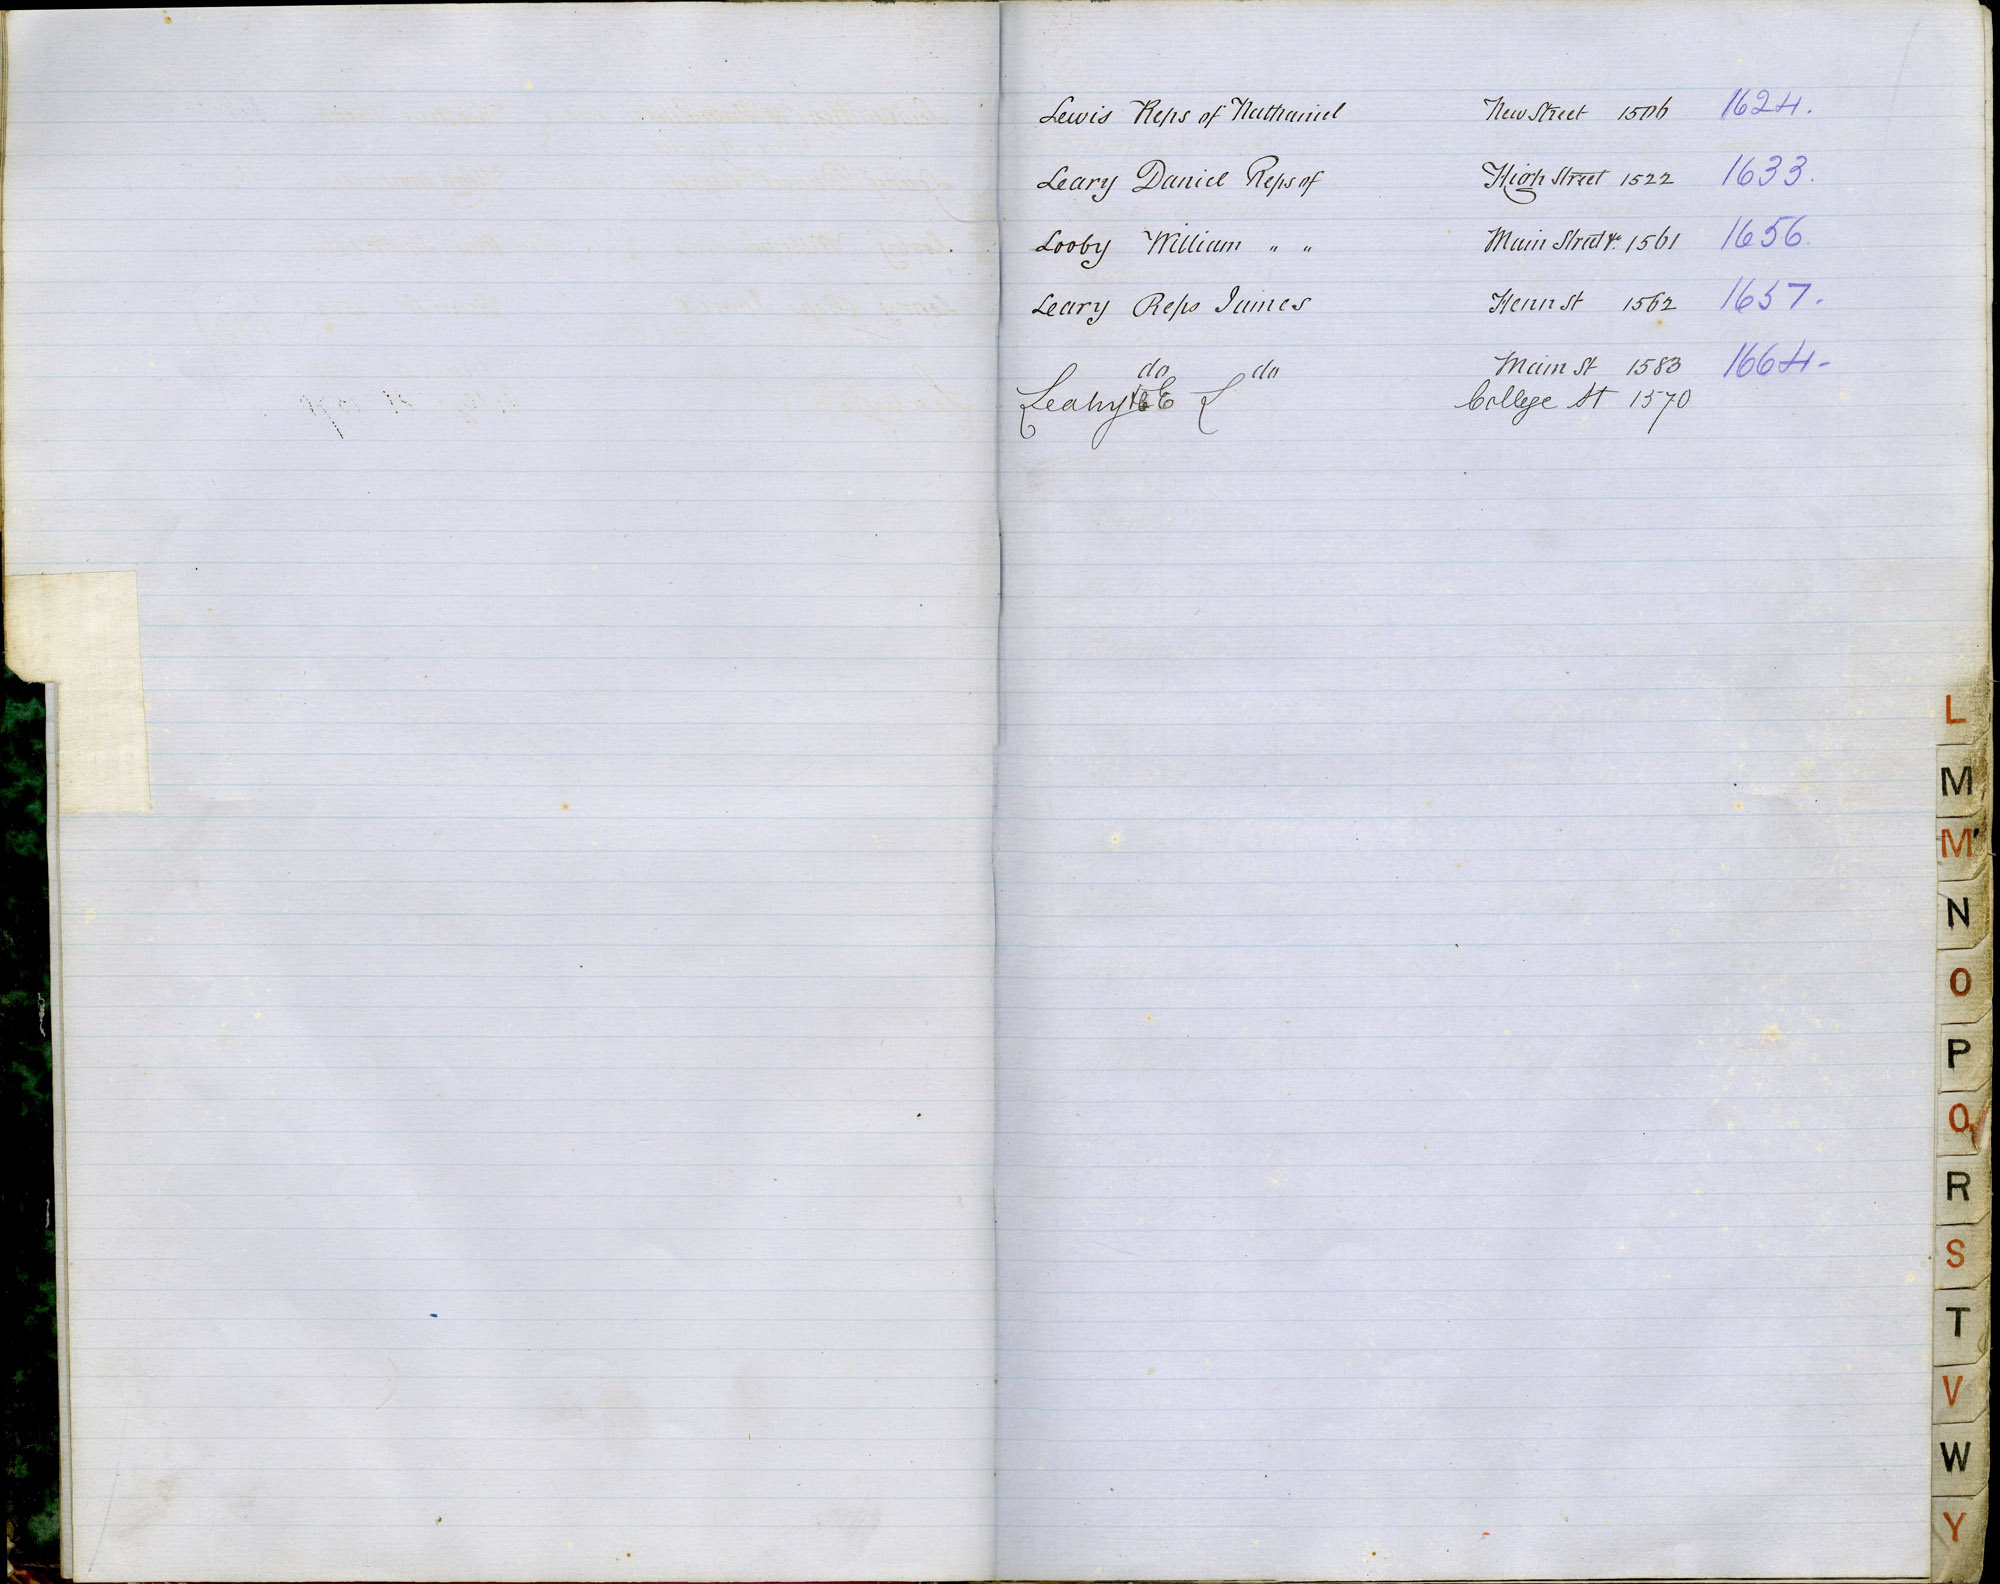 Lewis Reps of Nathaniel New Street 1506 1624.
Leary Daniel Reps of High Street 1522 1633.
Looby William " " Main Street &c 1561 1656.
Leary Reps James Henn St 1562 1657.
do do Main St 1583 1664-
Leahy College St 1570
L
M
M'
N
O
P
O'
R
S
T
V
W
Y